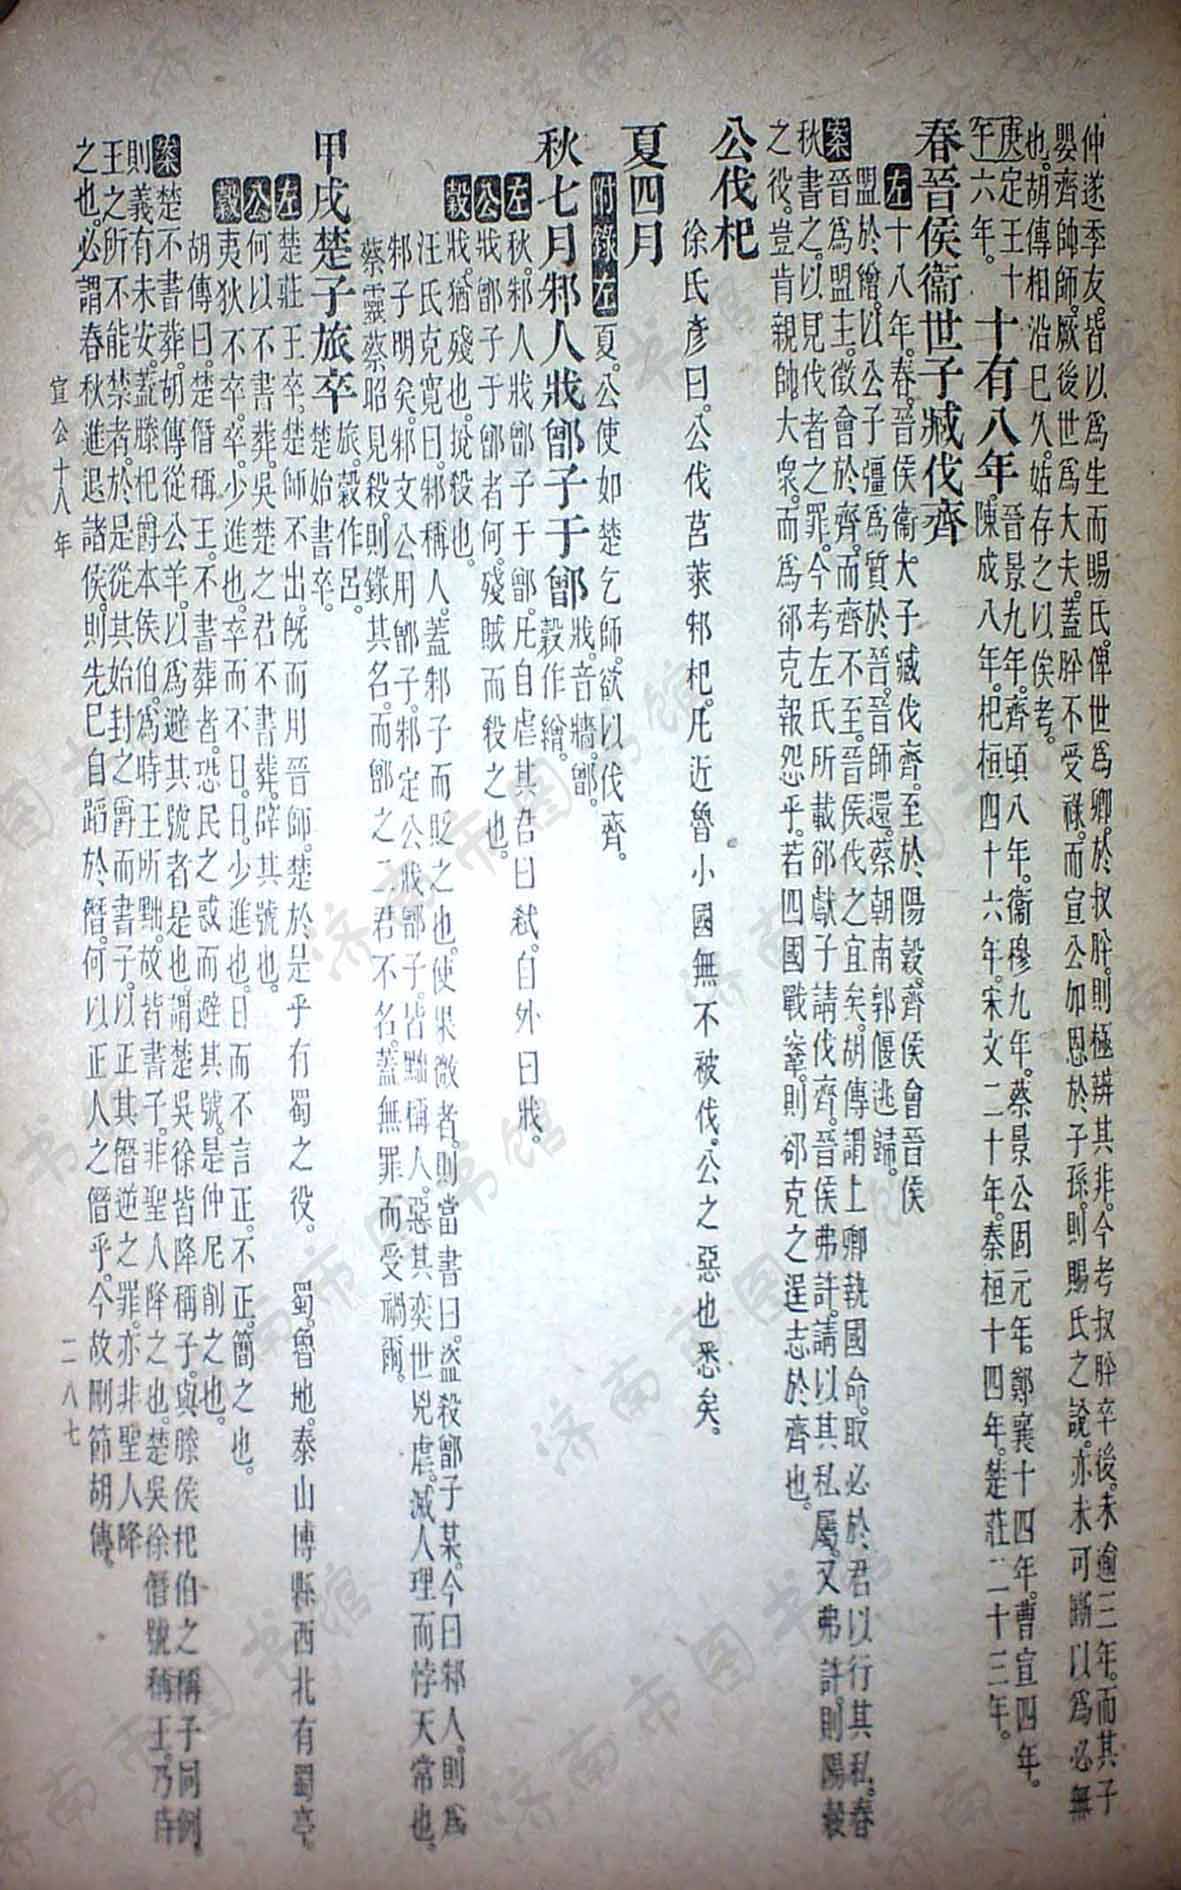 仲遂季友。皆以爲生而賜氏。俾世爲卿。於叔肸。則極辨其非。今考叔肸卒後。未逾三年。而其子
嬰齊帥師。厥後世爲大夫。蓋肸不受祿。而宣公加恩於子孫。則賜氏之說。亦未可斷以爲必無
也。胡傳相沿已久。姑存之以俟考。
庚午 定王十六年。 十有八年。 晉景九年。齊頃八年。衞穆九年。蔡景公固元年。鄭襄十四年。曹宣四年。
陳成八年。杞桓四十六年。宋文二十年。秦桓十四年。楚莊二十三年。
春晉侯衞世子臧伐齊
左十八年。春。晉侯衞大子臧伐齊。至於陽穀。齊侯會晉侯
盟於繒。以公子彊爲質於晉。晉師還。蔡朝南郭偃逃歸。
案晉爲盟主。徵會於齊。而齊不至。晉侯伐之宜矣。胡傳謂上卿執國命。取必於君以行其私。春
秋書之。以見伐者之罪。今考左氏所載郤獻子請伐齊。晉侯弗許。請以其私屬。又弗許。則陽穀
之役。豈肯親帥大衆。而爲郤克報怨乎。若四國戰鞌。則郤克之逞志於齊也。
公伐杞
徐氏彥曰。公伐莒萊邾杞。凡近魯小國無不被伐。公之惡也悉矣。
夏四月
附錄左夏。公使如楚乞師。欲以伐齊。
秋七月邾人戕鄫子于鄫 戕。音牆。鄫。
穀作繒。
左秋。邾人戕鄫子于鄫。凡自虐其君曰弒。自外曰戕。
公戕鄫子于鄫者何。殘賊而殺之也。
穀戕。猶殘也。捝殺也。
汪氏克寬曰。邾稱人。蓋邾子而貶之也。使果微者。則當書曰。盜殺鄫子某。今曰邾人。則爲
邾子明矣。邾文公用鄫子。邾定公戕鄫子。皆黜稱人。惡其奕世兇虐。滅人理而悖天常也。
蔡靈蔡昭見殺。則錄其名。而鄫之二君不名。蓋無罪而受禍爾。
甲戌楚子旅卒 旅。穀作呂。
楚始書卒。
左楚莊王卒。楚師不出。旣而用晉師。楚於是乎有蜀之役。 蜀。魯地。泰山博縣西北有蜀亭。
公何以不書葬。吳楚之君不書葬。辟其號也。
穀夷狄不卒。卒。少進也。卒而不日。日。少進也。日而不言正。不正。簡之也。
胡傳曰。楚僭稱王。不書葬者。恐民之惑而避其號。是仲尼削之也。
案楚不書葬。胡傳從公羊。以爲避其號者是也。謂楚吳徐皆降稱子。與滕侯杞伯之稱子同例。
則義有未安。蓋滕杞爵本侯伯。爲時王所黜。故皆書子。非聖人降之也。楚吳徐僭號稱王。乃時
王之所不能禁者。於是從其始封之爵而書子。以正其僭逆之罪。亦非聖人降
之也。必謂春秋進退諸侯。則先已自蹈於僭。何以正人之僭乎。今故刪節胡傳。
宣公十八年
二八七